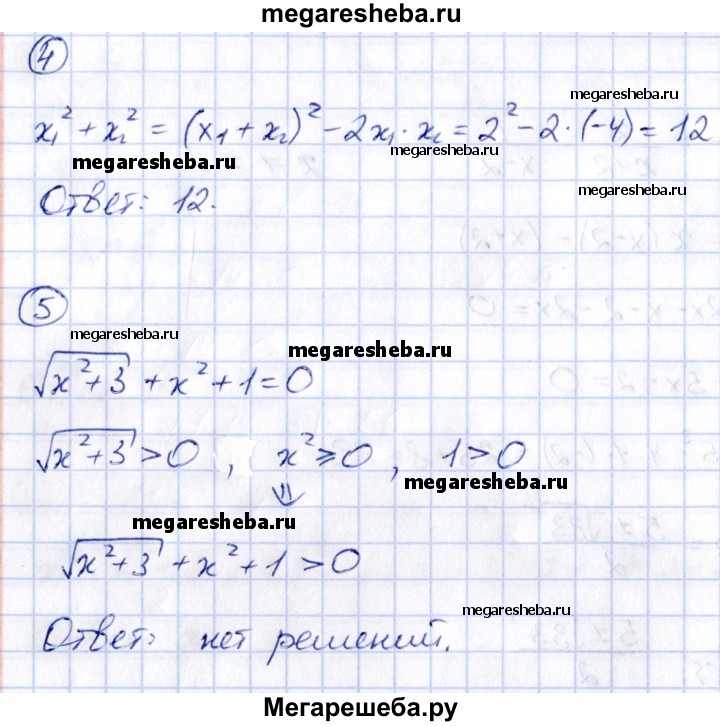 megaresheba.ru
4
megaresheba.ru
x₁² + x₂² = (x₁ + x₂)² - 2x₁ · x₂ = 2² - 2 · (-4) = 12
megaresheba.ru
Ответ: 12.
megaresheba.ru
5
megaresheba.ru
megaresheba.ru
√(x² + 3) + x² + 1 = 0
√(x² + 3) > 0 , x² ⩾ 0 , 1 > 0
megaresheba.ru
⇓
megaresheba.ru
√(x² + 3) + x² + 1 > 0
megaresheba.ru
Ответ: нет решений.
Мегарешеба.ру